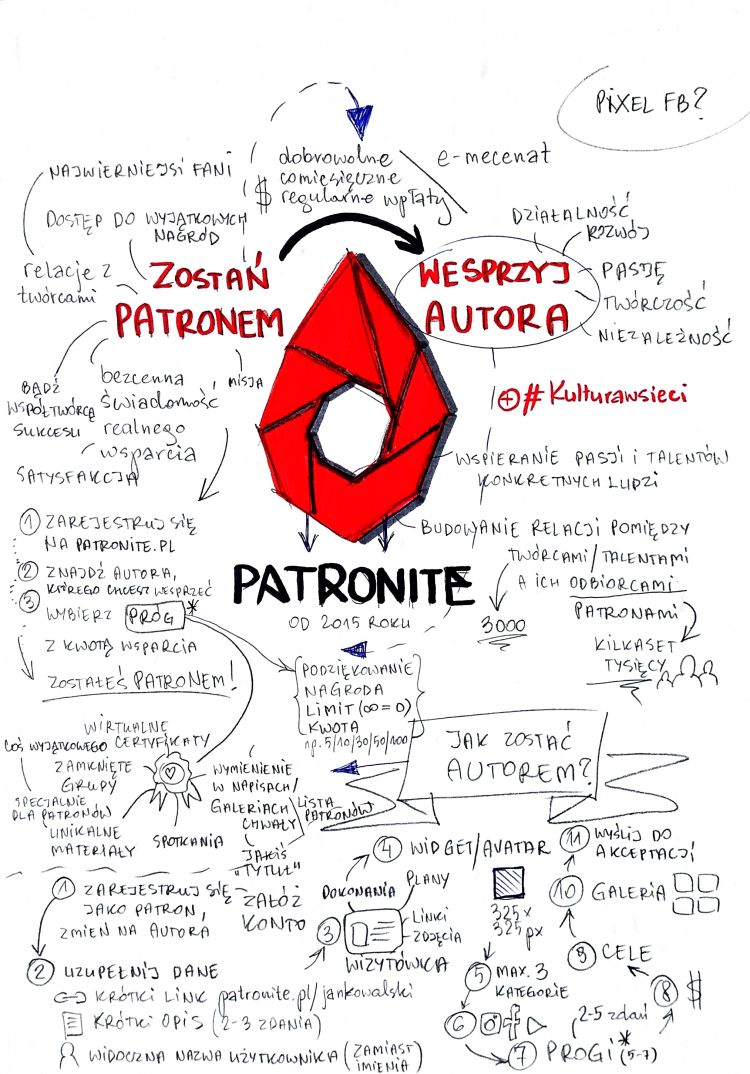 PIXEL FB?
dobrowolne
comiesięczne
$ regularne wpłaty
e-mecenat
NAJWIERNIEJSI FANI
DOSTĘP DO WYJĄTKOWYCH
NAGRÓD
relacje z
twórcami
ZOSTAŃ
PATRONEM
WESPRZYJ
AUTORA
DZIAŁALNOŚĆ
ROZWÓJ
PASJĘ
TWÓRCZOŚĆ
NIEZALEŻNOŚĆ
BĄDŹ
WSPÓŁTWÓRCĄ
SUKCESU
bezcenna
świadomość
realnego
wsparcia
MISJA
SATYSFAKCJA
+ #Kulturawsieci
WSPIERANIE PASJI I TALENTÓW
KONKRETNYCH LUDZI
BUDOWANIE RELACJI POMIĘDZY
TWÓRCAMI/TALENTAMI
A ICH ODBIORCAMI
PATRONAMI
3000
KILKASET
TYSIĘCY
1 ZAREJESTRUJ SIĘ
NA PATRONITE.PL
2 ZNAJDŹ AUTORA,
KTÓREGO CHCESZ WESPRZEĆ
3 WYBIERZ PRÓG*
Z KWOTĄ WSPARCIA
ZOSTAŁEŚ PATRONEM!
PATRONITE
OD 2015 ROKU
PODZIĘKOWANIE
NAGRODA
LIMIT (∞ = 0)
KWOTA
np. 5/10/30/50/100
WIRTUALNE
CERTYFIKATY
COŚ WYJĄTKOWEGO
ZAMKNIĘTE
GRUPY
SPECJALNIE
DLA PATRONÓW
UNIKALNE
MATERIAŁY
SPOTKANIA
WYMIENIENIE
W NAPISACH/
GALERIACH
CHWAŁY
LISTA
PATRONÓW
JAKIŚ
"TYTUŁ"
JAK ZOSTAĆ
AUTOREM?
1 ZAREJESTRUJ SIĘ
JAKO PATRON,
ZMIEŃ NA AUTORA
ZAŁÓŻ
KONTO
2 UZUPEŁNIJ DANE
KRÓTKI LINK patronite.pl/jankowalski
KRÓTKI OPIS (2-3 ZDANIA)
WIDOCZNA NAZWA UŻYTKOWNIKA (ZAMIAST
IMIENIA)
3
DOKONANIA
PLANY
LINKI
ZDJĘCIA
WIZYTÓWKA
4 WIDGET/AVATAR
325 x
325 px
5 MAX. 3
KATEGORIE
6
7 PROGI* (5-7)
(2-5 zdań
8 $
9 CELE
10 GALERIA
11 WYŚLIJ DO
AKCEPTACJI